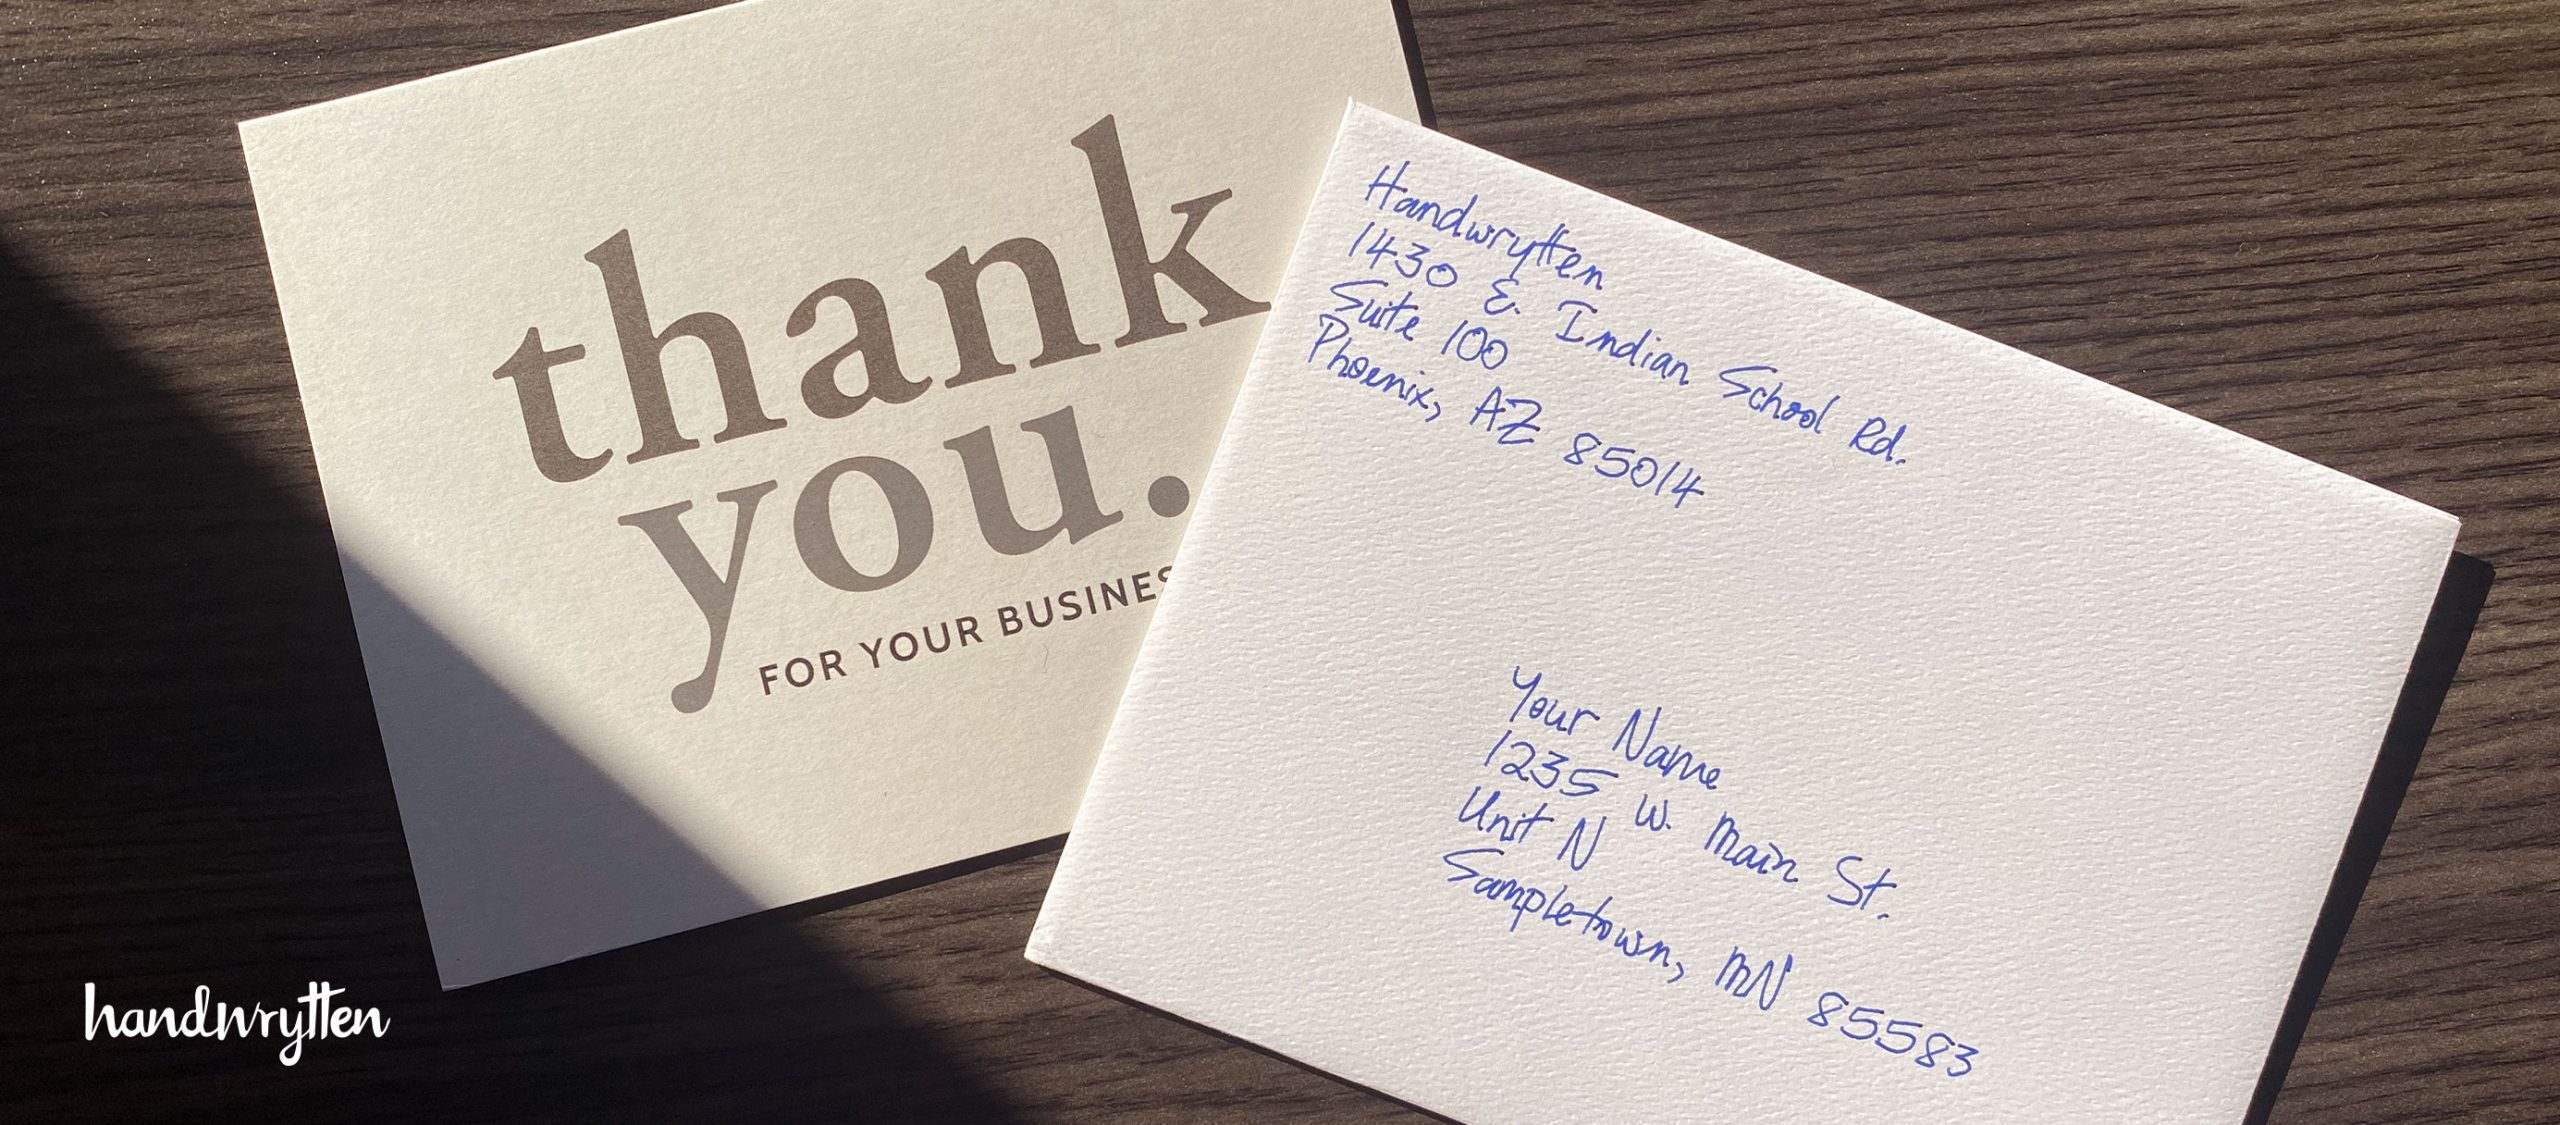 thank
you.
FOR YOUR BUSINES
Handwrytten
1430 E. Indian School Rd.
Suite 100
Phoenix, AZ 85014
Your Name
1235 W. Main St.
Unit N
Sampletown, MN 85583
handwrytten